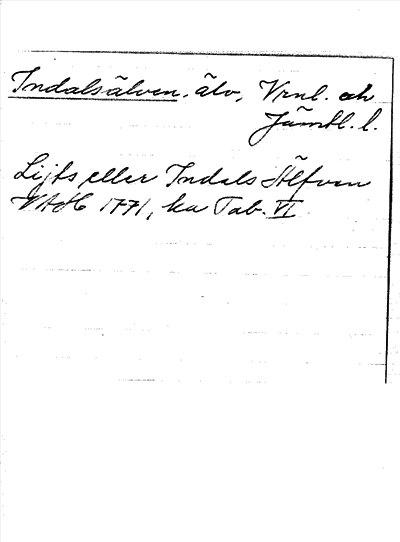 Indalsälven, älv, Vrnl. och
Jämtl. l.
Lijts eller Indals Älfven
VAH 1771, ka Tab. VI